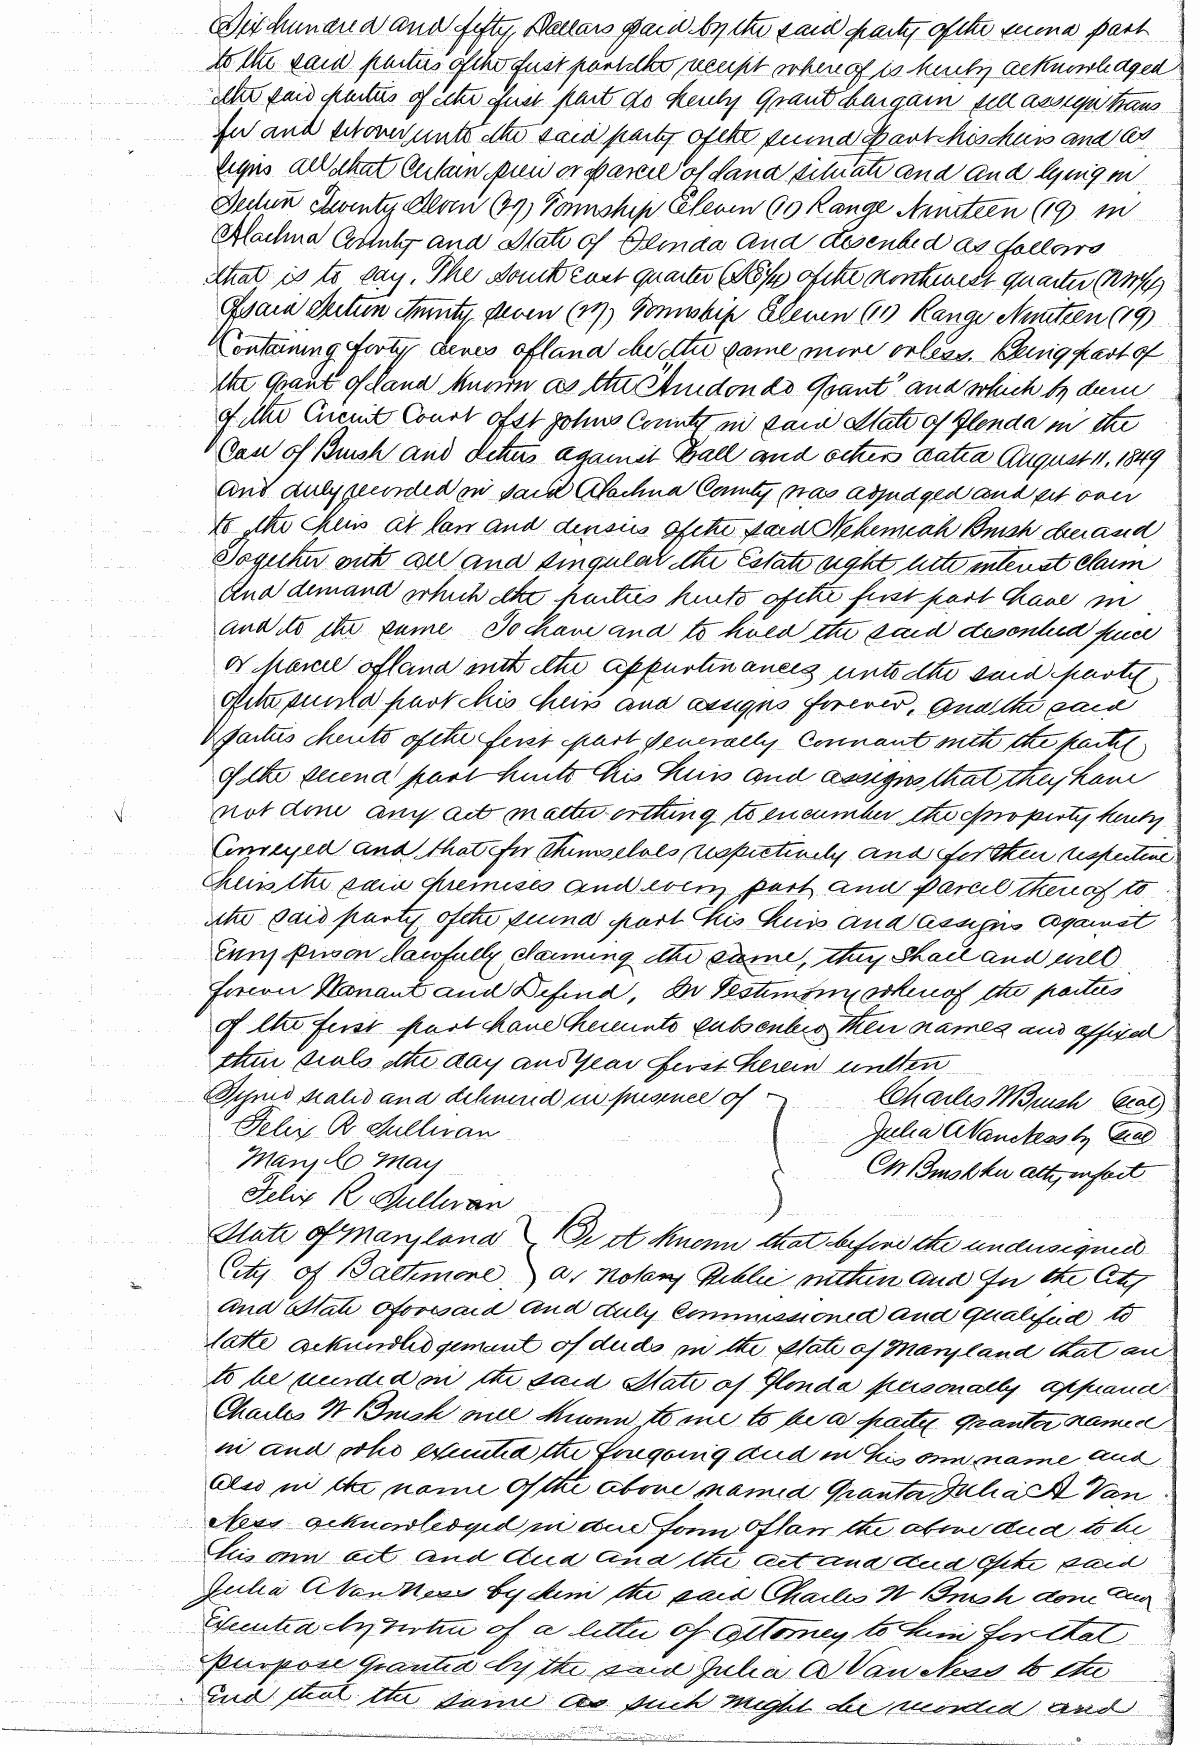 Six hundred and fifty Dollars paid by the said party of the second part
to the said parties of the first part the receipt whereof is hereby acknowledged
the said parties of the first part do hereby Grant bargain sell assign trans
fer and set over unto the said party of the second part his heirs and as
signs all that Certain piece or parcel of land situate and and lying in
Section Twenty Seven (27) Township Eleven (11) Range Nineteen (19) in
Alachua County and State of Florida and described as follows
that is to say. The South east quarter (SE/4) of the northwest quarter (NW/4)
of said Section twenty seven (27) Township Eleven (11) Range Nineteen (19)
Containing forty acres of land be the same more or less. Being part of
the Grant of land known as the "Arredondo Grant" and which by decree
of the Circuit Court of St Johns County in said State of Florida in the
Case of Brush and others against Hall and others dated August 11, 1849
and duly recorded in said Alachua County was adjudged and set over
to the heirs at law and devisees of the said Nehemiah Brush deceased
Together with all and singular the Estate right title interest Claim
and demand which the parties hereto of the first part have in
and to the same To have and to hold the said described piece
or parcel of land with the appurtinances unto the said party
of the second part his heirs and assigns forever. and the said
parties hereto of the first part severally covenant with the party
of the second part hereto his heirs and assigns that they have
not done any act matter or thing to encumber the property hereby
Conveyed and that for themselves respectively and for their respective
heirs the said premises and every part and parcel thereof to
the said party of the second part his heirs and assigns against
every person lawfully claiming the same, they shall and will
forever Warrant and Defend. In Testimony whereof the parties
of the first part have hereunto subscribed their names and affixed
their seals the day and year first herein written
Signed sealed and delivered in presence of Charles W Brush (seal)
Felix R Sullivan Julia A Van Ness by (seal)
Mary C May C W Brush her atty in fact
Felix R Sullivan
State of Maryland } Be it known that before the undersigned
City of Baltimore } a Notary Public within and for the City
and State aforesaid and duly Commissioned and qualified to
take acknowledgement of deeds in the state of Maryland that are
to be recorded in the said State of Florida personally appeared
Charles W Brush well known to me to be a party grantor named
in and who executed the foregoing deed in his own name and
also in the name of the above named Grantor Julia A Van
Ness acknowledged in due form of law the above deed to be
his own act and deed and the act and deed of the said
Julia A Van Ness by him the said Charles W Brush done and
Executed by virtue of a letter of attorney to him for that
purpose Granted by the said Julia A Van Ness to the
End that the same as such might be recorded and